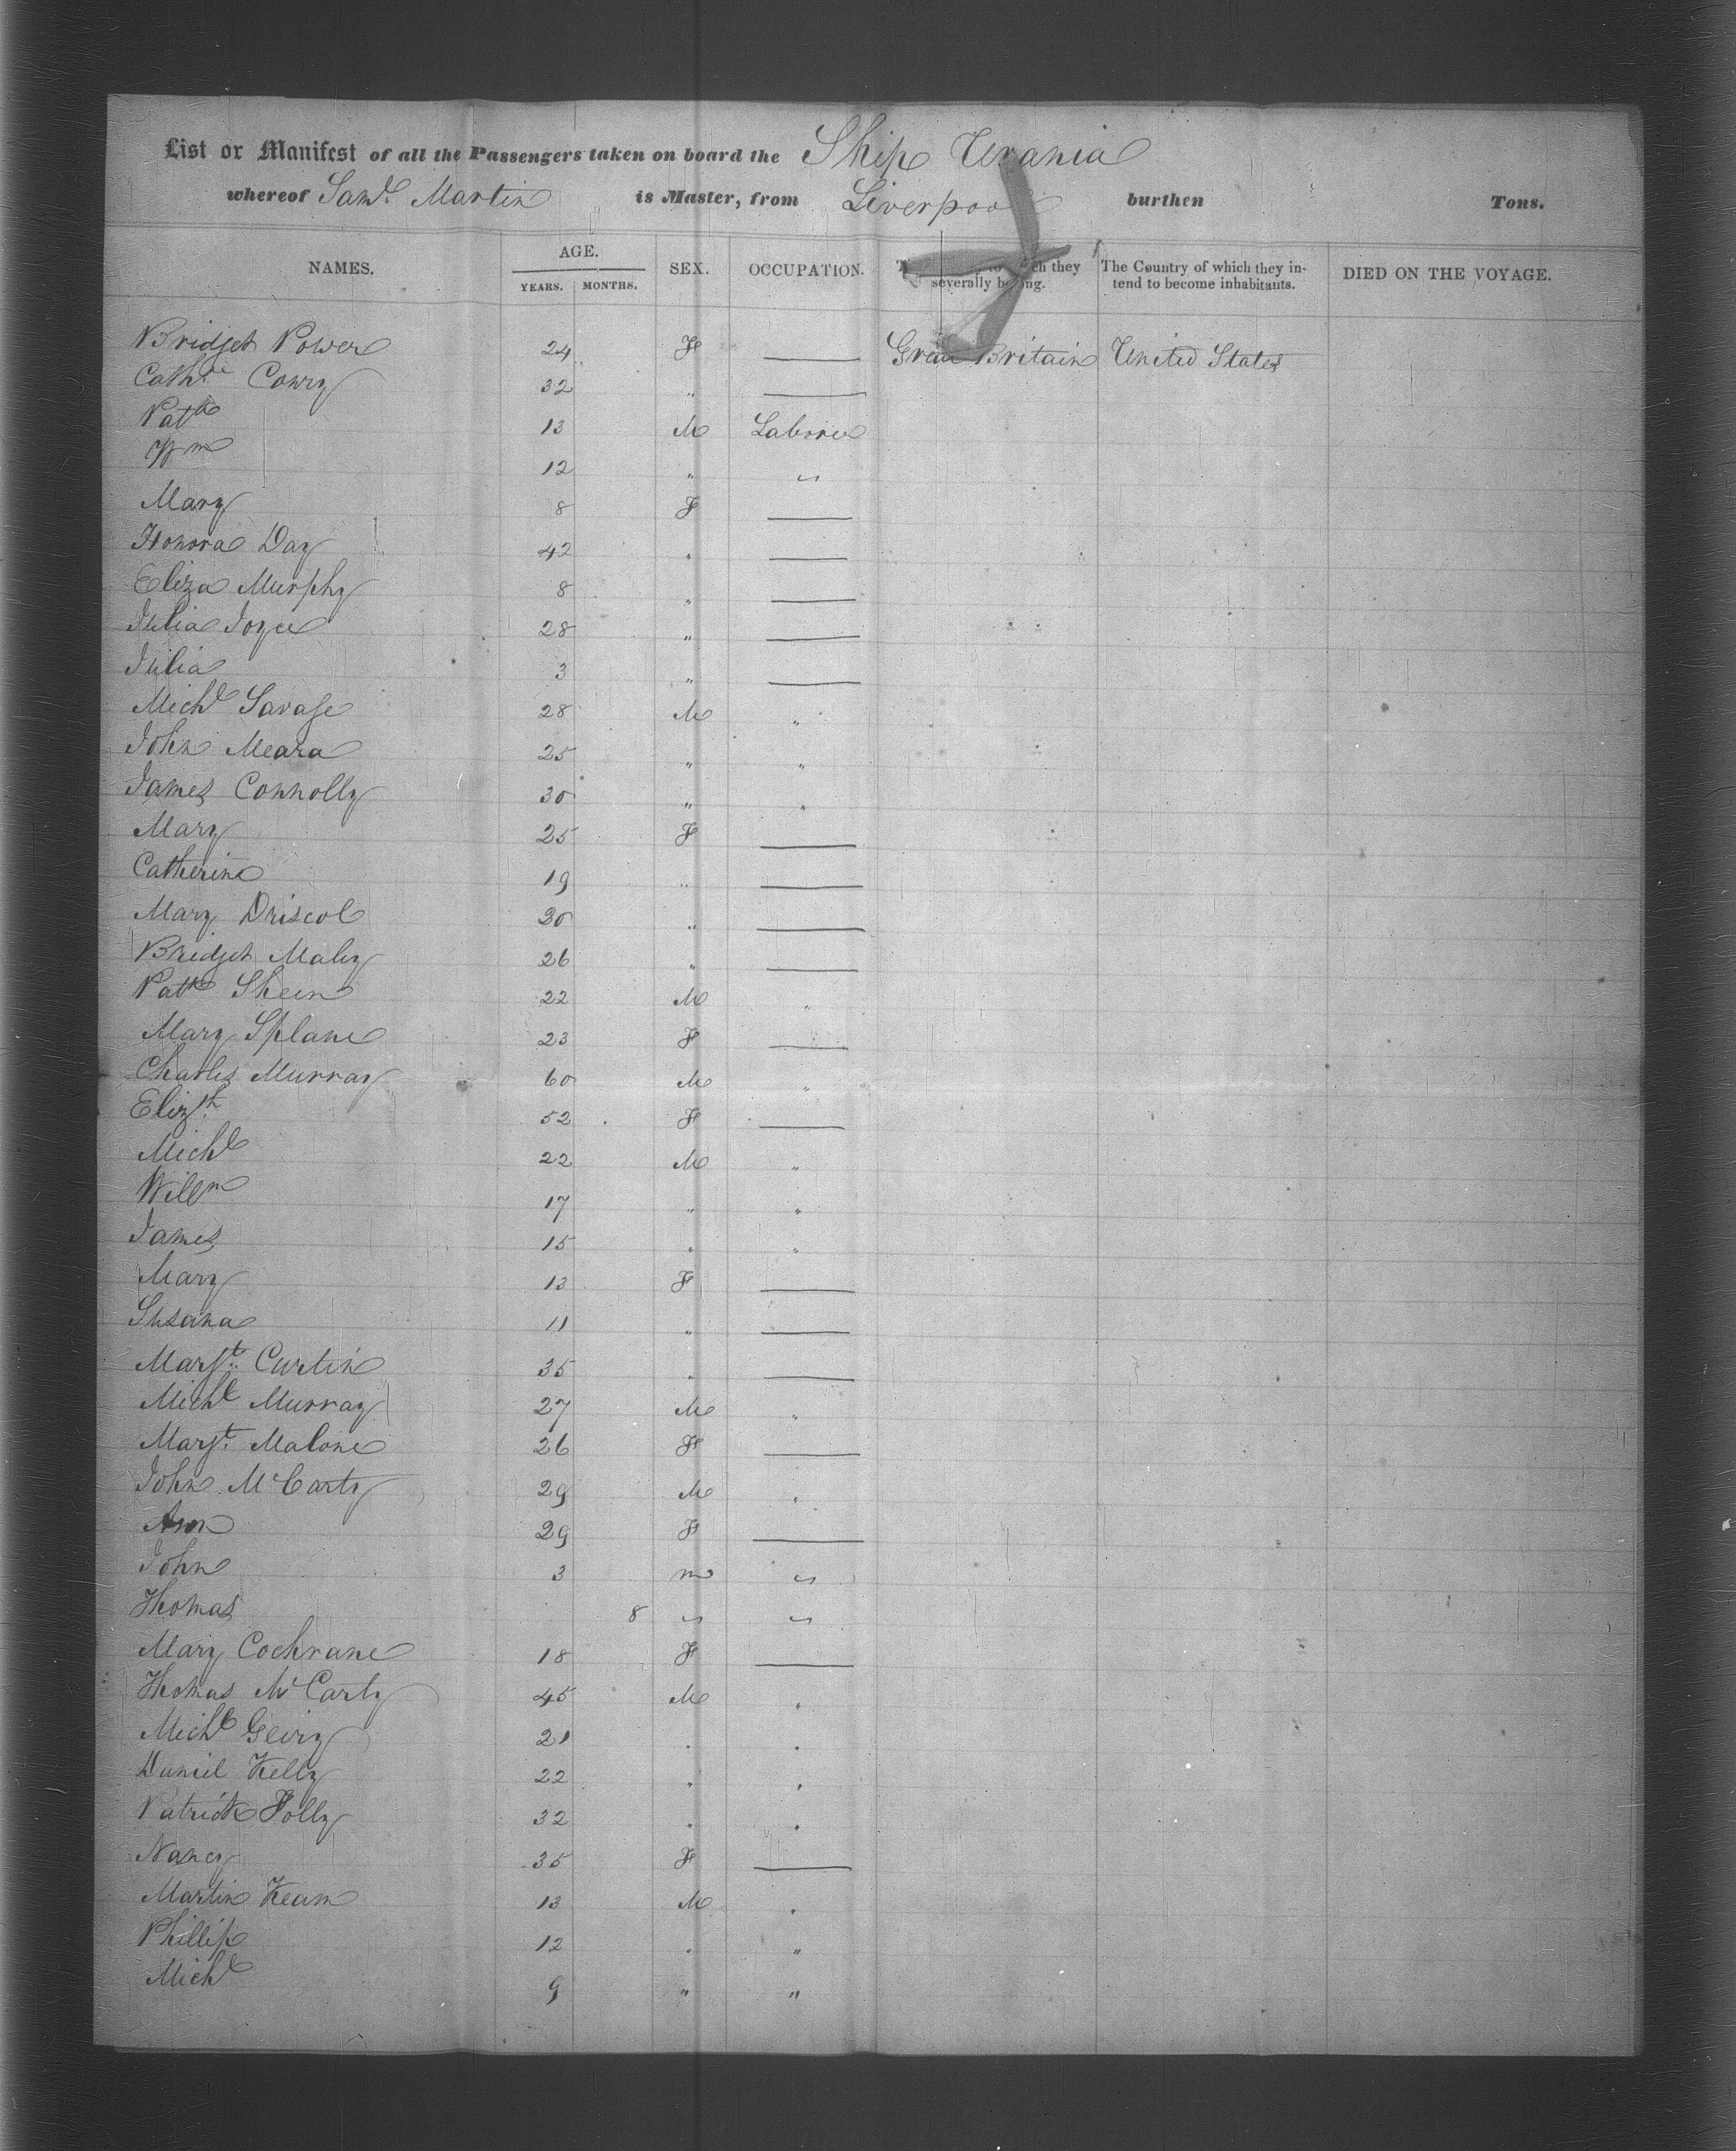 List or Manifest of all the Passengers taken on board the Ship Urania
whereof Saml. Martin is Master, from Liverpool burthen Tons.
NAMES. AGE. YEARS. MONTHS. SEX. OCCUPATION. to which they severally belong. The Country of which they intend to become inhabitants. DIED ON THE VOYAGE.
Bridget Power 24 F — Great Britain United States
Cathne Conry 32 " —
Patk 13 M Laborer
Wm 12 " "
Mary 8 F —
Honora Day 42 " —
Eliza Murphy 8 " —
Julia Joyce 28 " —
Julia 3 " —
Michl Savage 28 M "
John Meara 25 " "
James Connolly 30 " "
Mary 25 F —
Catherine 19 " —
Mary Driscol 30 " —
Bridget Maley 26 " —
Patk Sheen 22 M "
Mary Splane 23 F —
Charles Murray 60 M "
Elizth 52 F —
Michl 22 M "
Willm 17 " "
James 15 " "
Mary 13 F —
Susana 11 " —
Margt. Curtin 35 " —
Michl Murray 27 M "
Margt. Malone 26 F —
John McCarty 29 M "
Ann 29 F —
John 3 m "
Thomas 8 " "
Mary Cochrane 18 F —
Thomas McCarty 45 M "
Michl 21 " "
Daniel Kelly 22 " "
Patrick Folly 32 " "
Nancy 35 F —
Martin Keam 13 M "
Phillip 12 " "
Michl 9 " "